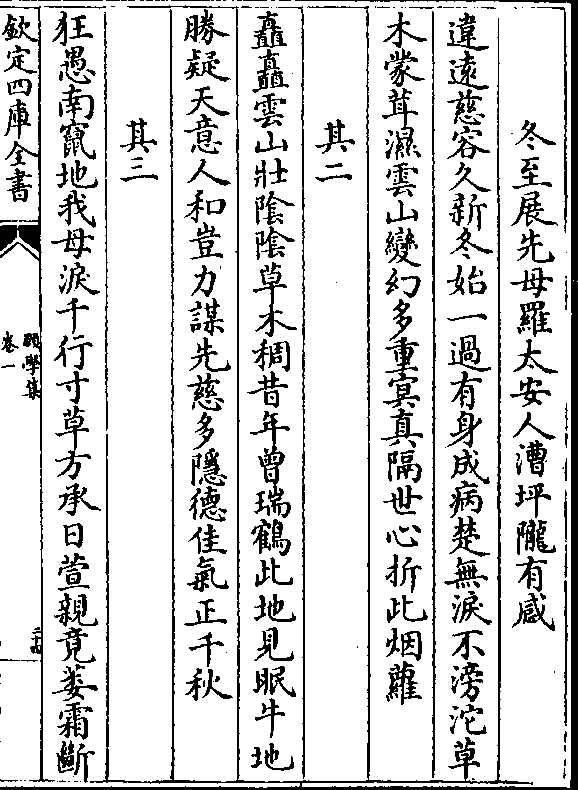 冬至展先母羅太安人漕坪隴有感
違遠慈容久新冬始一過有身成病楚無淚不滂沱草
木蒙茸濕雲山變幻多重冥真隔世心折此烟蘿
其二
矗矗雲山壯陰陰草木稠昔年曾瑞鶴此地見眠牛地
勝疑天意人和豈力謀先慈多隱德佳氣正千秋
其三
狂愚南竄地我母淚千行寸草方承日萱親竟萎霜斷
欽定四庫全書
願學集
卷一